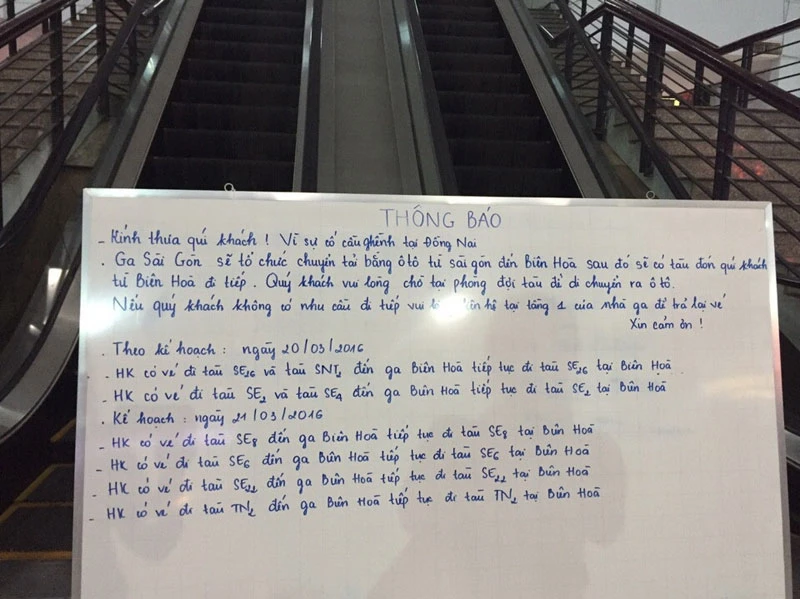 THÔNG BÁO
- Kính thưa quí khách ! Vì sự cố cầu ghềnh tại Đồng Nai
. Ga Sài Gòn sẽ tổ chức chuyển tải bằng ôtô từ sài gòn đến Biên Hoà sau đó sẽ có tàu đón quí khách
từ Biên Hoà đi tiếp . Quý khách vui lòng chờ tại phòng đợi tàu để di chuyển ra ô tô.
Nếu quý khách không có nhu cầu đi tiếp vui hệ tại tầng 1 của nhà ga để trả lại vé
Xin cảm ơn !
. Theo kế hoạch : ngày 20/03/2016
- HK có vé đi tàu SE26 và tàu SNT2 đến ga Biên Hoà tiếp tục đi tàu SE26 tại Biên Hoà
- HK có vé đi tàu SE2 và tàu SE4 đến ga Biên Hoà tiếp tục đi tàu SE2 tại Biên Hoà
. Kế hoạch : ngày 21/03/2016
- HK có vé đi tàu SE8 đến ga Biên Hoà tiếp tục đi tàu SE8 tại Biên Hoà
- HK có vé đi tàu SE6 đến ga Biên Hoà tiếp tục đi tàu SE6 tại Biên Hoà
- HK có vé đi tàu SE22 đến ga Biên Hoà tiếp tục đi tàu SE22 tại Biên Hoà
- HK có vé đi tàu TN2 đến ga Biên Hoà tiếp tục đi tàu TN2 tại Biên Hoà